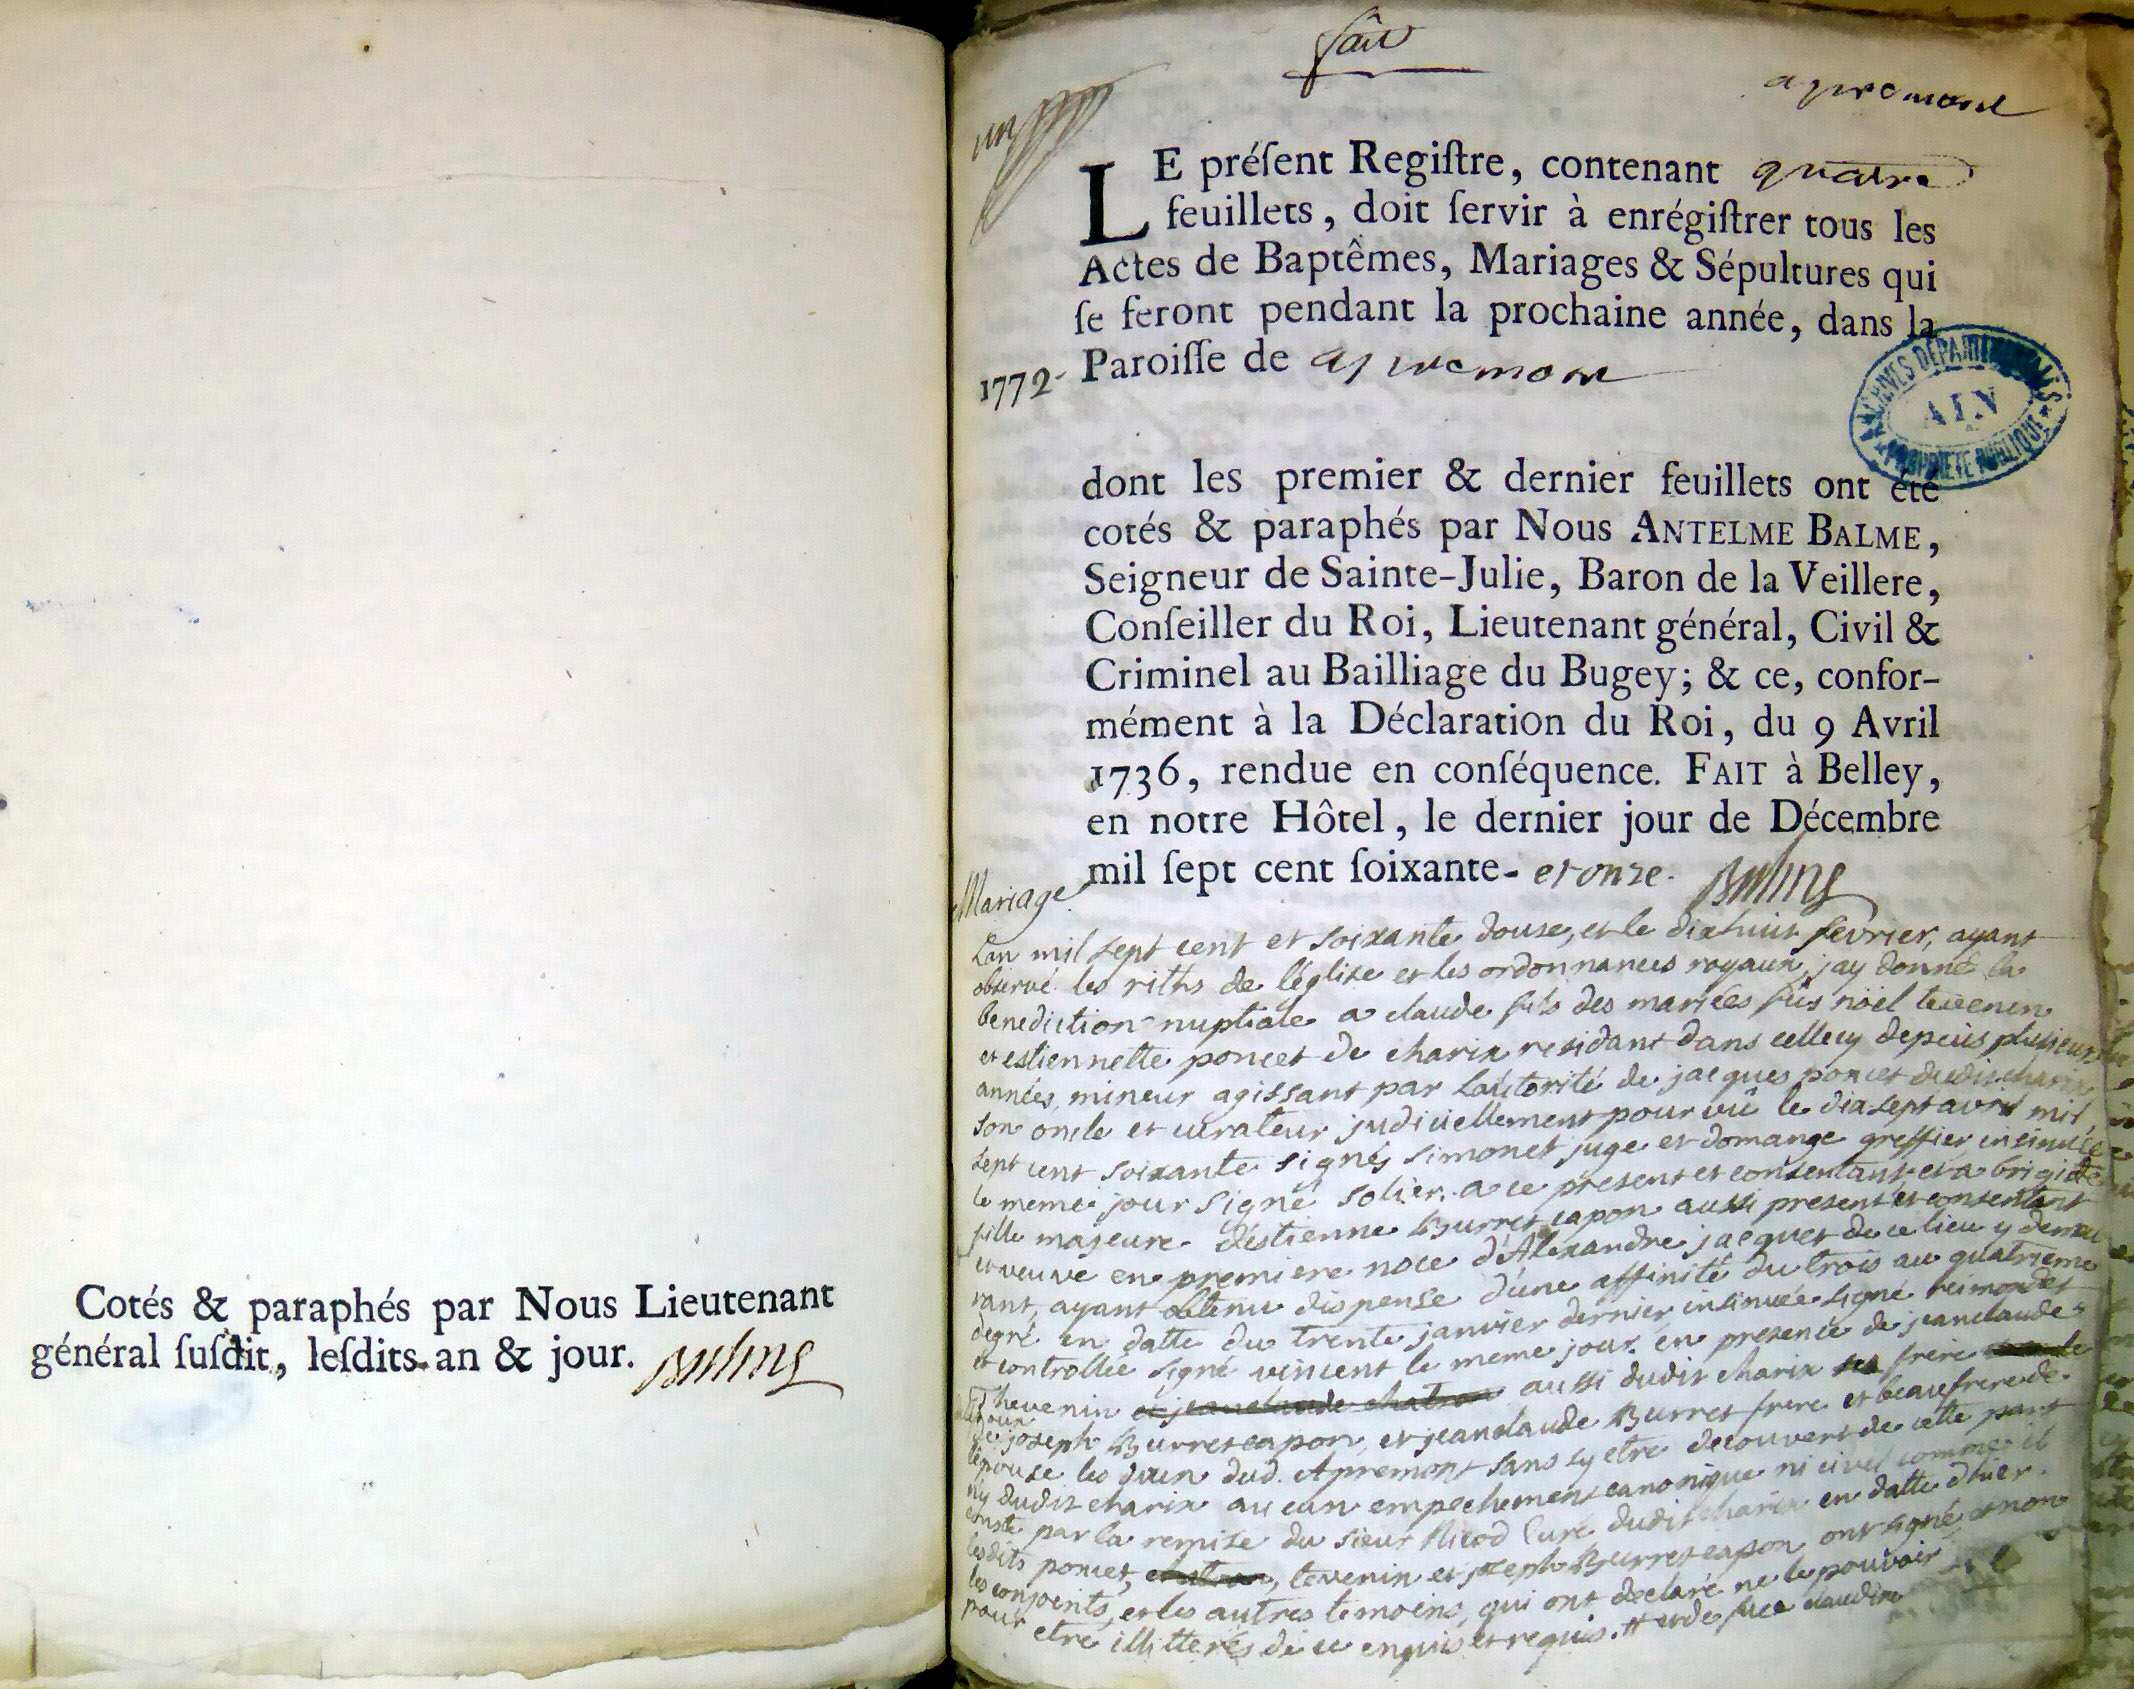 Cotés & paraphés par Nous Lieutenant
général ſuſdit, leſdits an & jour.
fait
apremont
un
LE préſent Regiſtre, contenant quatre
feuillets, doit ſervir à enrégiſtrer tous les
Actes de Baptêmes, Mariages & Sépultures qui
ſe feront pendant la prochaine année, dans la
1772 Paroiſſe de apremont
ARCHIVES DÉPARTEMENTALES
AIN
PROPRIÉTÉ PUBLIQUE
dont les premier & dernier feuillets ont été
cotés & paraphés par Nous ANTELME BALME,
Seigneur de Sainte-Julie, Baron de la Veillere,
Conſeiller du Roi, Lieutenant général, Civil &
Criminel au Bailliage du Bugey; & ce, confor-
mément à la Déclaration du Roi, du 9 Avril
1736, rendue en conſéquence. FAIT à Belley,
en notre Hôtel, le dernier jour de Décembre
mil ſept cent ſoixante- et onze.
Mariage
Lan mil sept cent et soixante douse, et le dixhuit fevrier, ayant
observé les riths de léglise et les ordonnances royaux, jay donné la
benediction nuptiale a claude fils des mariées fûs noël tevenin
et estiennette poncet de charix residant dans cellecy depuis plusieurs
années, mineur agissant par Lautorité de jacques poncet dudit charix
son oncle et curateur judiciellement pourvû le dix sept avril mil
sept cent soixante signés simonet juge et domange greffier, insinuée
le meme jour signé solier. a ce present et consentant et a brigitte
fille majeure d'éstienne Burret capon aussi present et consentant
et veuve en premiere noce d'Alexandre jacquet de ce lieu y demeu
rant, ayant obtenu dispense d'une affinité du trois au quatrieme
degré en datte du trente janvier dernier insinuée signé reimondet
et controllée signé vincent le meme jour. en presence de jeanclaude
Thevenin et jeanclaude chatron aussi dudit charix frère
de joseph Burret capon, et jeanclaude Burret frere et beaufrere de
lépouse les deux dud. Apremont sans sy etre decouvert de cette part
ny dudit charix aucun empechement canonique ni civil comme il
conste par la remise du sieur Nicod Curé dudit charix en datte dhier.
lesdits poncet, tevenin et joseph Burret capon ont signé et non
les conjoints, et les autres temoins, qui ont declaré ne le pouvoir
pour etre illitterés de ce enquis et requis. # et de fûe claudine